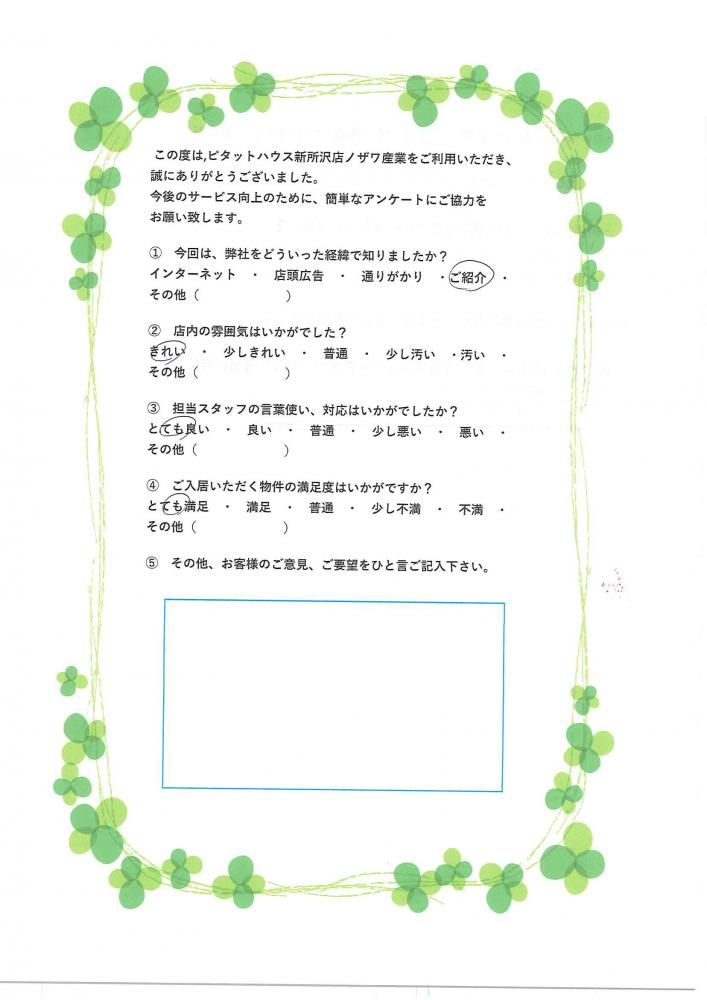 この度は,ピタットハウス新所沢店ノザワ産業をご利用いただき、
誠にありがとうございました。
今後のサービス向上のために、簡単なアンケートにご協力を
お願い致します。
① 今回は、弊社をどういった経緯で知りましたか？
インターネット ・ 店頭広告 ・ 通りがかり ・ご紹介 ・
その他（ ）
② 店内の雰囲気はいかがでした？
きれい ・ 少しきれい ・ 普通 ・ 少し汚い ・汚い ・
その他（ ）
③ 担当スタッフの言葉使い、対応はいかがでしたか？
とても良い ・ 良い ・ 普通 ・ 少し悪い ・ 悪い ・
その他（ ）
④ ご入居いただく物件の満足度はいかがですか？
とても満足 ・ 満足 ・ 普通 ・ 少し不満 ・ 不満 ・
その他（ ）
⑤ その他、お客様のご意見、ご要望をひと言ご記入下さい。